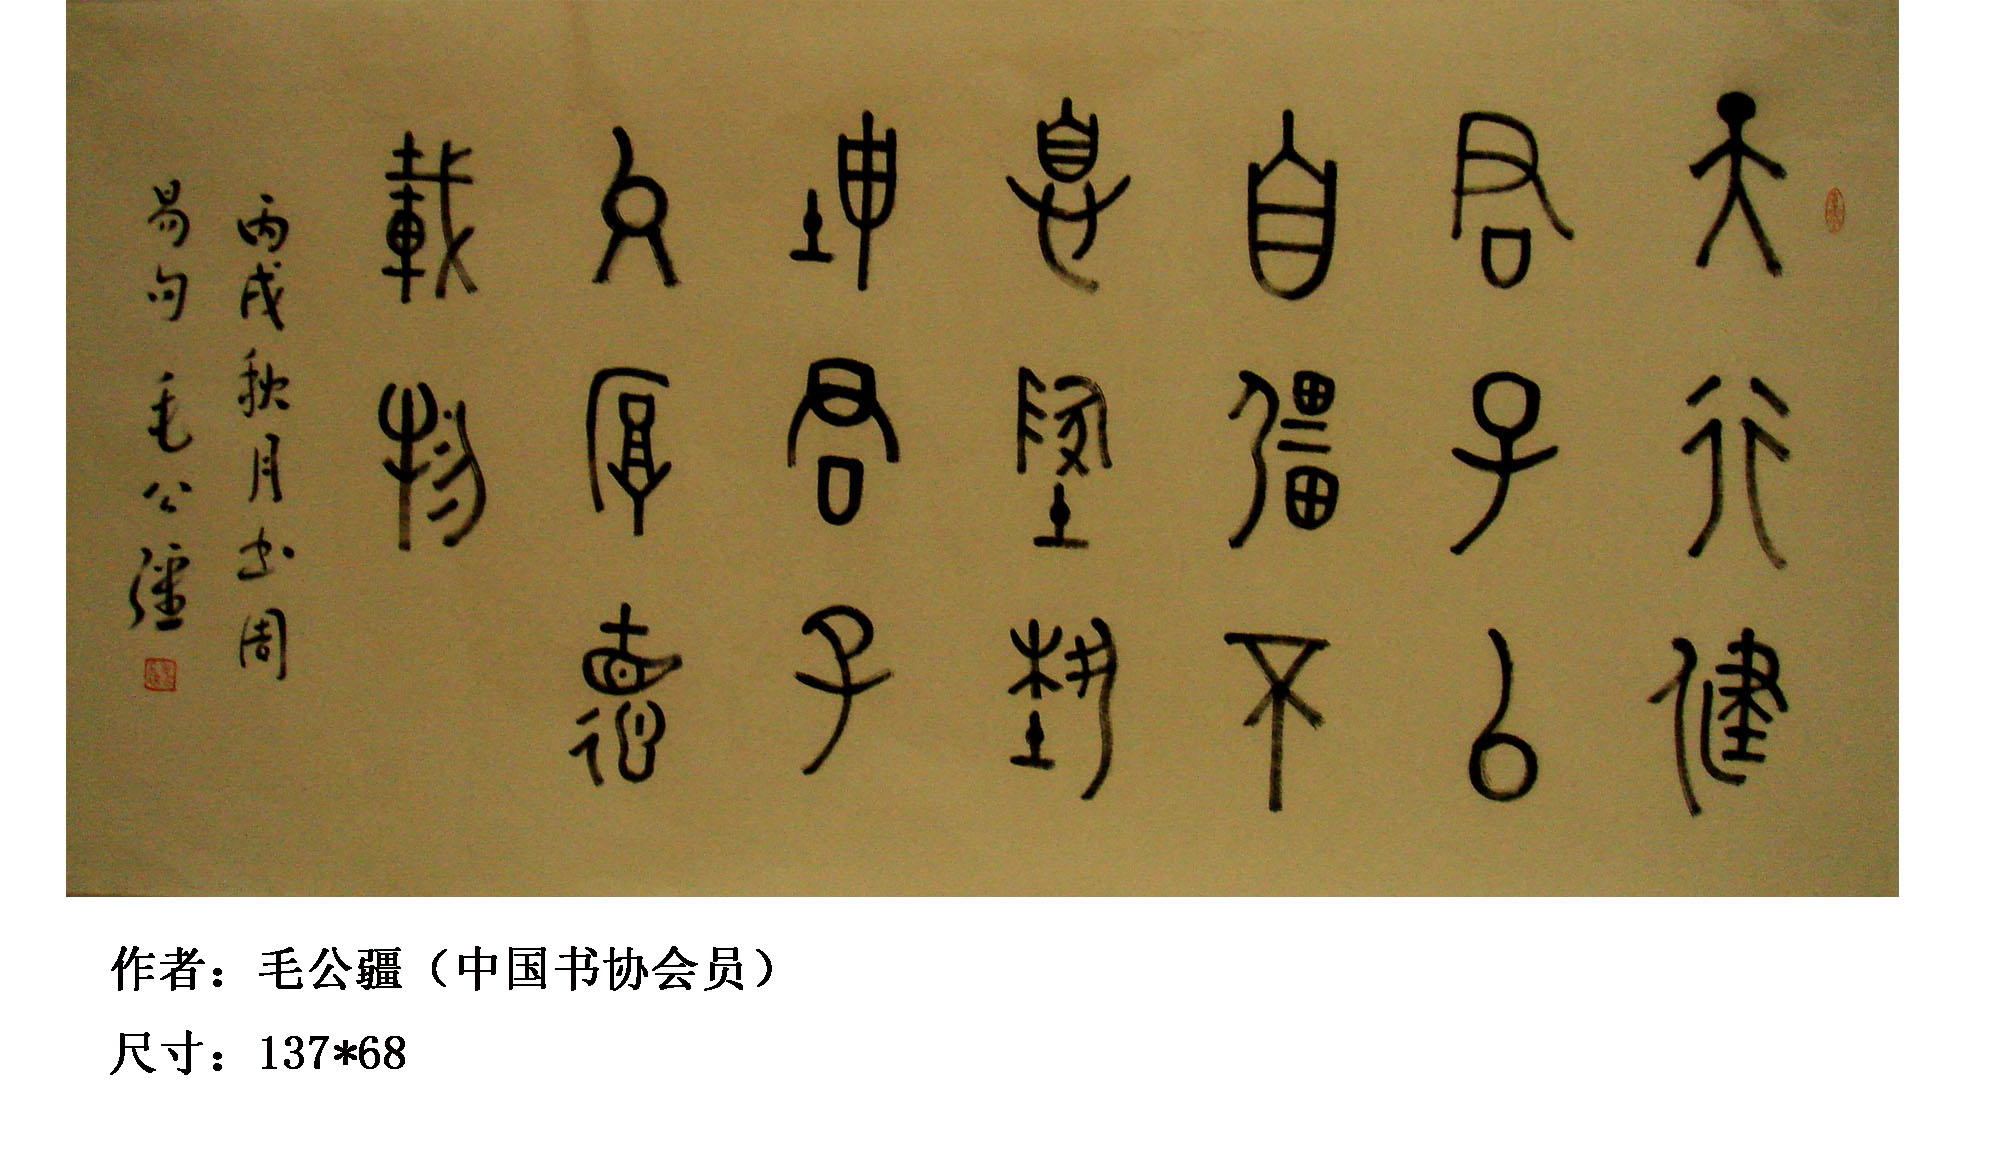 天行健
君子以
自彊不
息墬埶
坤君子
以厚德
載物
丙戌秋月书周
易句 毛公疆
作者：毛公疆（中国书协会员）
尺寸：137*68